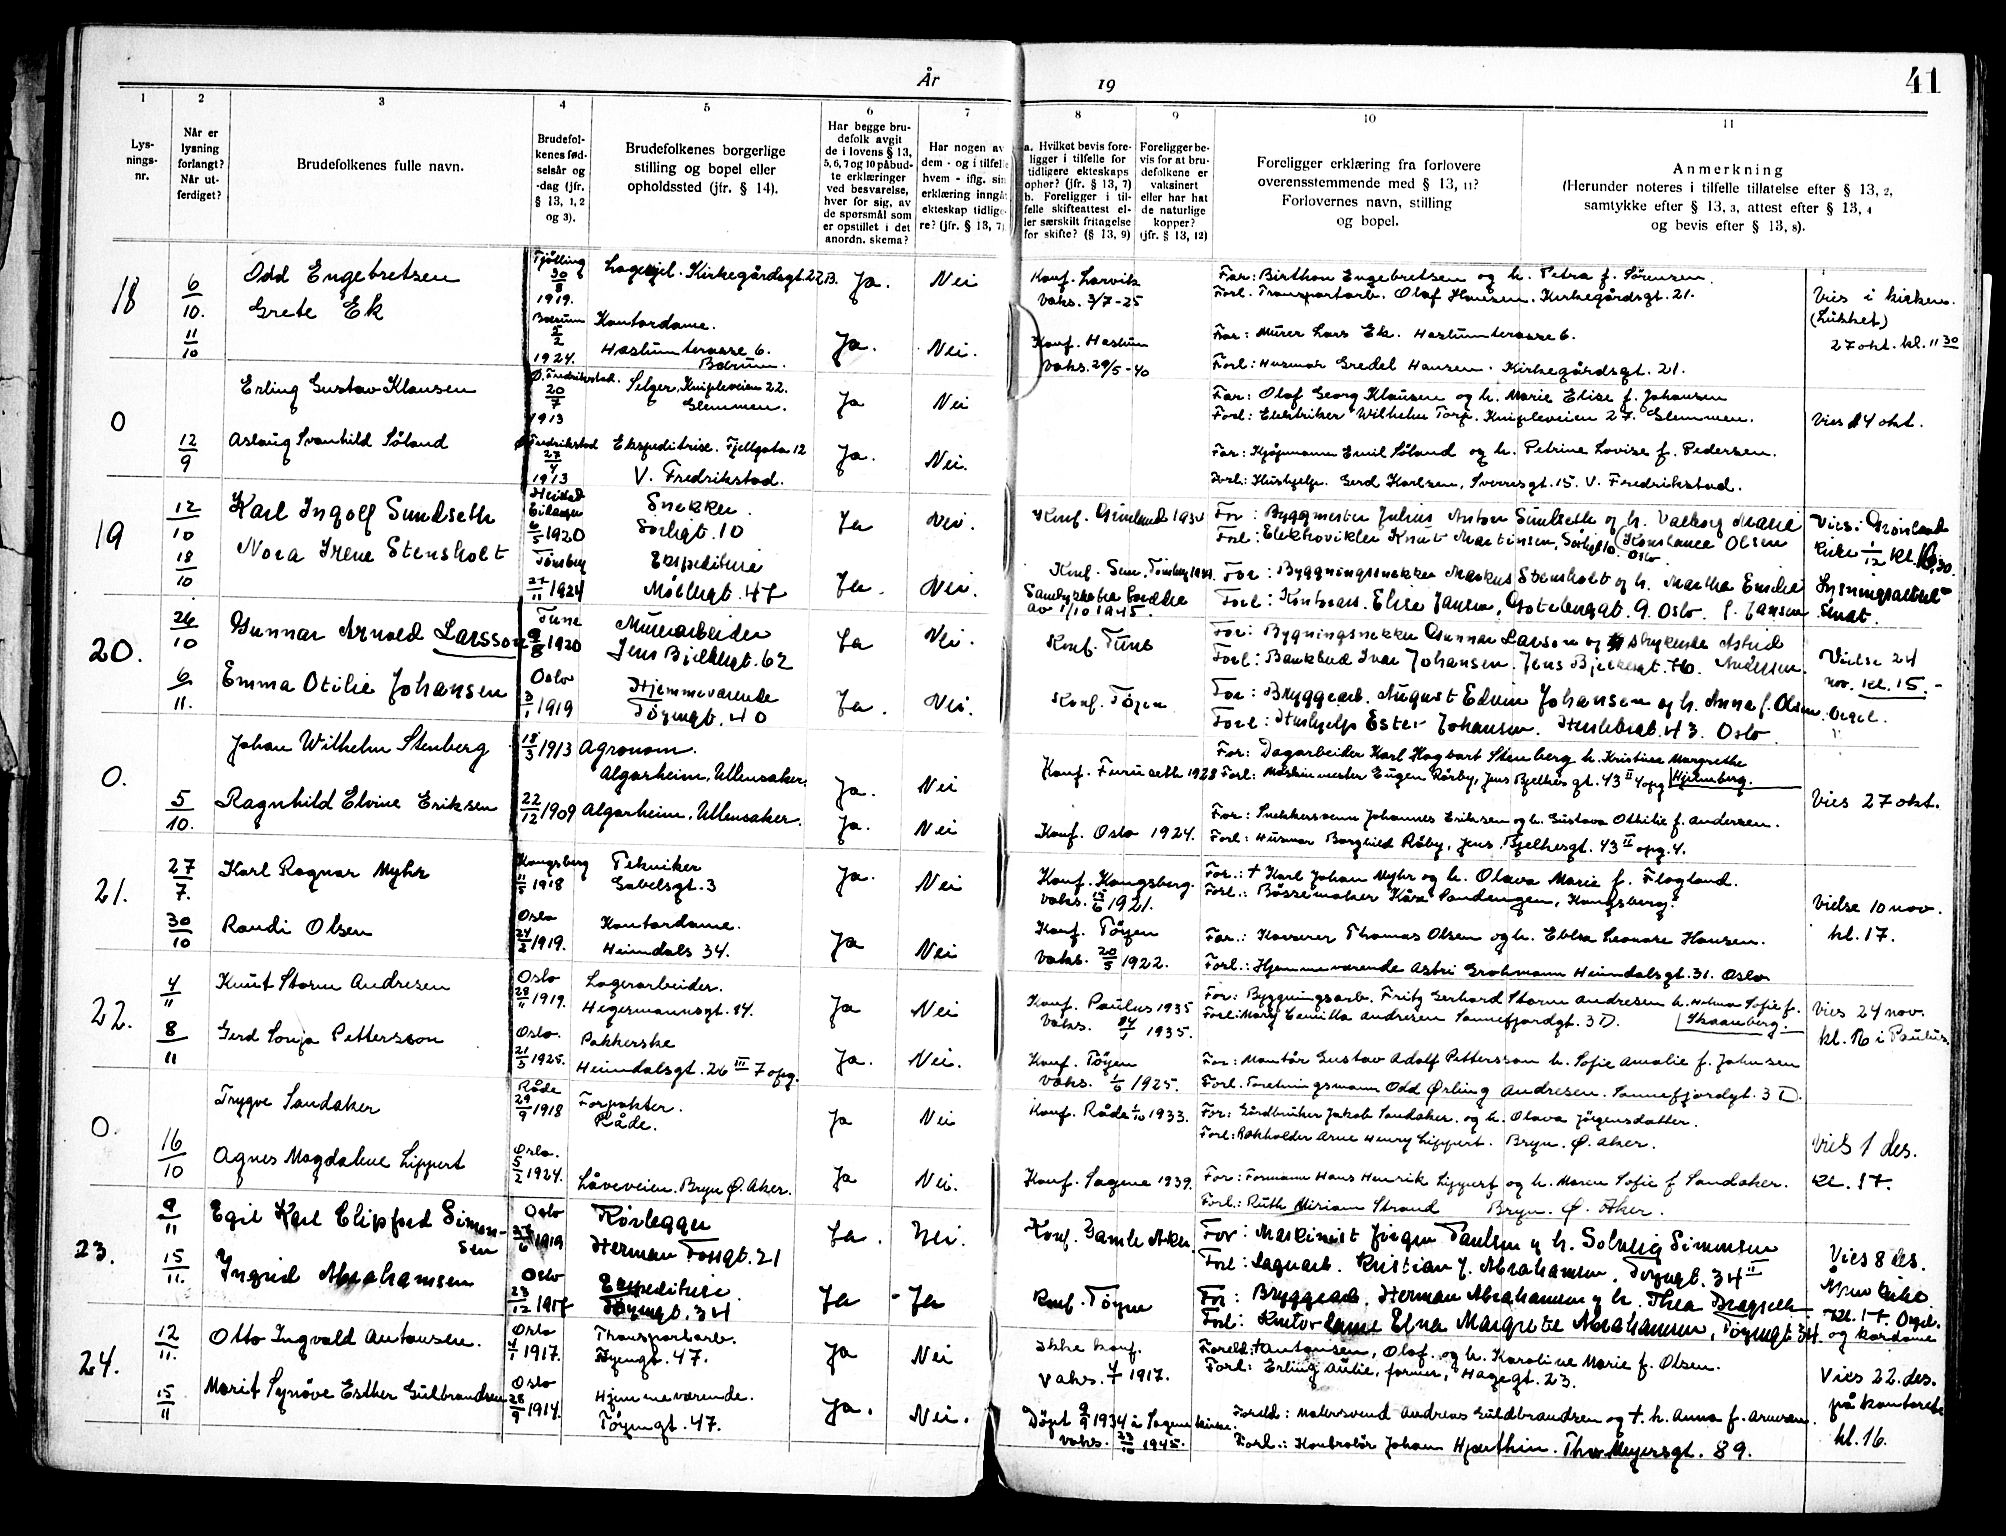 År 19
41
1 2 3 4 5 6 7 8 9 10 11
Lys-
nings-
nr.
Når er
lysning
forlangt?
Når ut-
ferdiget?
Brudefolkenes fulle navn.
Brudefol-
kenes fød-
selsår og
-dag (jfr.
§ 13, 1, 2
og 3).
Brudefolkenes borgerlige
stilling og bopel eller
opholdssted (jfr. § 14).
Har begge bru-
defolk avgit
de i lovens § 13,
5, 6, 7 og 10 påbud-
te erklæringer
ved besvarelse,
hver for sig, av
de spørsmål som
er opstillet i det
anordn. skema?
Har nogen av
dem - og i tilfelle
hvem - iflg. sin
erklæring inngått
ekteskap tidlige-
re? (jfr. § 13, 7)
a. Hvilket bevis fore-
ligger i tilfelle for
tidligere ekteskaps
ophør? (jfr. § 13, 7)
b. Foreligger i til-
felle skifteattest el-
ler særskilt fritagelse
for skifte? (§ 13, 9)
Foreligger be-
vis for at bru-
defolkene er
vaksinert
eller har hat
de naturlige
kopper?
(jfr. § 13, 12)
Foreligger erklæring fra forlovere
overensstemmende med § 13, 11?
Forlovernes navn, stilling
og bopel.
Anmerkning
(Herunder noteres i tilfelle tillatelse efter § 13, 2,
samtykke efter § 13, 3, attest efter § 13, 4
og bevis efter § 13, 8).
18 6/10 Odd Engebretsen Tjølling 30/8 1919. Kirkegårdsgt. 22 B. Ja. Nei Konf. Larvik vaks. 3/7-25
Far: Birthon Engebretsen og h. Petra f. Sørensen
Forl. Transportarb. Olaf Hansen. Kirkegårdsgt. 21.
Vies i kirken. (Lukket) 27 okt. kl. 11 30
11/10 Grete Ek Bærum 5/2 1924. Kontordame. Haslumterasse 6. Bærum. Ja. Nei. Konf. Haslum vaks. 29/5-40
Far: Murer Lars Ek. Haslumterasse 6.
Forl: Husmor Gredel Hansen. Kirkegårdsgt. 21.
0 Erling Gustav Klausen Ø. Fredrikstad. 20/7 1913 Selger, Knipleveien 22. Glemmen. Ja Nei
Far: Olaf Georg Klausen og h. Marie Elise f. Johansen
Forl: Elektriker Wilhelm Torp. Knipleveien 27. Glemmen.
Vies 14 okt.
12/9 Aslaug Svanhild Søland Fredrikstad 27/4 1913 Ekspeditrise. Fjellgata 12 V. Fredrikstad. Ja. Nei.
Far: Kjøpmann Emil Søland og h. Petrine Lovise f. Pedersen.
Forl: Hushjelp. Gerd Karlsen, Sverresgt. 15. V. Fredrikstad.
19 12/10 Karl Ingolf Sundseth 6/5 1920 Snekker Sørligt. 10 Ja Nei.
Far: Byggmester Julius Anton Sundseth og h. Valborg Marie
Forl: Elektrovikler Knut Martinsen, Sørligt 10. Oslo (Konstance Olsen
Vies: Grønland kirke 1/12 kl.
18/10 Nora Irene Stensholt Tønsberg 27/11 1924 Ekspeditrise Møllergt. 47 Ja. Nei. Konf. Sem, Tønsberg
av 1/10 1945.
Far: Byggningssnekker Markus Stensholt og h. Martha Emilie
Forl: Kontorass. Elise Jansen, Gøteborggt. 9. Oslo. f. Jansen
Lysningsattest sendt.
20. 26/10 Gunnar Arnold Larsson Tune 9/8 1920 Murerarbeider Jens Bjelkesgt. 62 Ja Nei. Konf. Tune
Far: Bygningssnekker Gunnar Larsson og strykerske Astrid
Forl: Bankbud Ivar Johansen. Jens Bjelkesgt. 76. Andersen
Vielse 24 nov. kl. 15. - Orgel.
6/11. Emma Otilie Johansen Oslo 3/1 1919 Hjemmeværende Tøyengt. 40 Ja. Nei. Konf. Tøyen
Far: Bryggearb. August Edvin Johansen og h. Anna f. Olsen
Forl: Hushjelp Ester Johansen. Heslebsgt. 43. Oslo.
0. Johan Wilhelm Stenberg 18/3 1913 Agronom. Algarheim, Ullensaker. Ja. Nei Konf. Furuseth 1928
Far: Dagarbeider Karl Hagbart Stenberg h. Kristine Margrethe Hjemberg.
Forl: Maskinmester Eugen Råby, Jens Bjelkes gt. 43 II 4 opg
Vies 27 okt.
5/10. Ragnhild Elvine Eriksen 22/12 1909 Algarheim, Ullensaker. Ja. Nei Konf. Oslo 1924.
Far: Snekkersvenn Johannes Eriksen og h. Gustava Othilie f. Andersen.
Forl: Husmor Borghild Råby, Jens Bjelkesgt. 43 II opg. 4.
21. 27/7. Karl Ragnar Myhr Kongsberg 11/5 1918 Tekniker Gabelsgt. 3 Ja. Nei Konf. Kongsberg. vaks. 15/6 1921.
Far: † Karl Johan Myhr og h. Olava Marie f. Flogland.
Forl: Bøssemaker Kåre Sandengen, Kongsberg.
Vielse 10 nov. kl. 17.
30/10 Randi Olsen Oslo 24/2 1919. Kontordame. Heimdals 34. Ja Nei Konf. Tøyen vaks. 20/5 1922.
Far: Kasserer Thomas Olsen og h. Ebba Leonore Hansen.
Forl.: Hjemmeværende Astri Grohmann Heimdalsgt. 31. Oslo
22. 4/11 Knut Storm Andresen Oslo 28/11 1919. Lagerarbeider. Hegermannsgt. 14. Ja Nei Konf. Paulus 1935 vaks. 1935.
Far: Byggningsarb. Fritz Gerhard Storm Andresen h. Helma Sofie f. Skaanberg.
Forl: Mary Camilla Andresen Sannefjordgt. 3 D.
Vies 24 nov. kl. 16 i Paulus.
8/11 Gerd Sonja Pettersson Oslo. 21/3 1925. Pakkerske Heimdalsgt. 26 III 7 opg. Ja. Nei. Konf. Tøyen vaks. 1/6 1925.
Far: Montør Gustav Adolf Pettersson h. Sofie Amalie f. Johnsen
Forl. Foretningsmann Odd Ørling Andresen. Sannefjordgt. 3 D.
0. Trygve Sandaker Råde 29/9 1918 Forpakter. Råde. Ja Nei Konf. Råde 1/10 1933.
Far: Gårdbruker Jakob Sandaker. og h. Olava Jörgensdatter.
Forl: Rakholder Arne Henry Lippert. Bryn. Ø. Aker.
Vies 1 des. kl. 17.
16/10 Agnes Magdalene Lippert Oslo. 5/2 1924. Låveveien. Bryn Ø. Aker. Ja Nei. Konf. Sagene 1939.
Far: Formann Hans Henrik Lippert og h. Maren Sofie f. Sandaker.
Forl: Ruth Miriam Strand Bryn. Ø. Aker.
23. 9/11 Egil Karl Elipfred Simon-sen Oslo 1919 Rørlegger Herman Fossgt. 21 Ja. Nei. Konf. Gamle Aker
Far: Maskinist Jørgen Paulsen og h. Solveig Simonsen
Forl: Lagerarb. Kristian J. Abrahamsen. Tøyengt. 34 II
Vies 8 des. Åpen kirke kl. 17. Orgel. og kordame
15/11. Ingrid Abrahamsen Oslo 23/12 1917 Ekspeditrise. Tøyengt. 34 Ja - Ja Konf. Tøyen
Far: Bryggearb. Herman Abrahamsen og h. Thea
Forl: Kontordame Elna Margrete Abrahamsen, Tøyengt 34.
24. 12/11. Otto Ingvald Antonsen. Oslo 1917. Transportarb. Tøyengt. 47. Ja Nei Ikke konf. vaks. 1917.
Foreld: † Antonsen, Olaf. og h. Karoline Marie f. Olsen.
Forl: Erling Aulie, former, Hagegt. 23.
Vies 22. des. på kontoret kl. 16.
15/11 Marit Synøve Esther Gulbrandsen Oslo 28/9 1914. Hjemmeværende. Tøyengt. 47. Ja. Nei. Døpt 9/9 1934 i Sagene kirke. vaks. 23/10 1945.
Foreld: Malersvend Andreas Guldbrandsen og †. h. Anna f. Arnesen.
Forl.: Kontrolør Johan Hjerthin. Thv Meyersgt. 89.